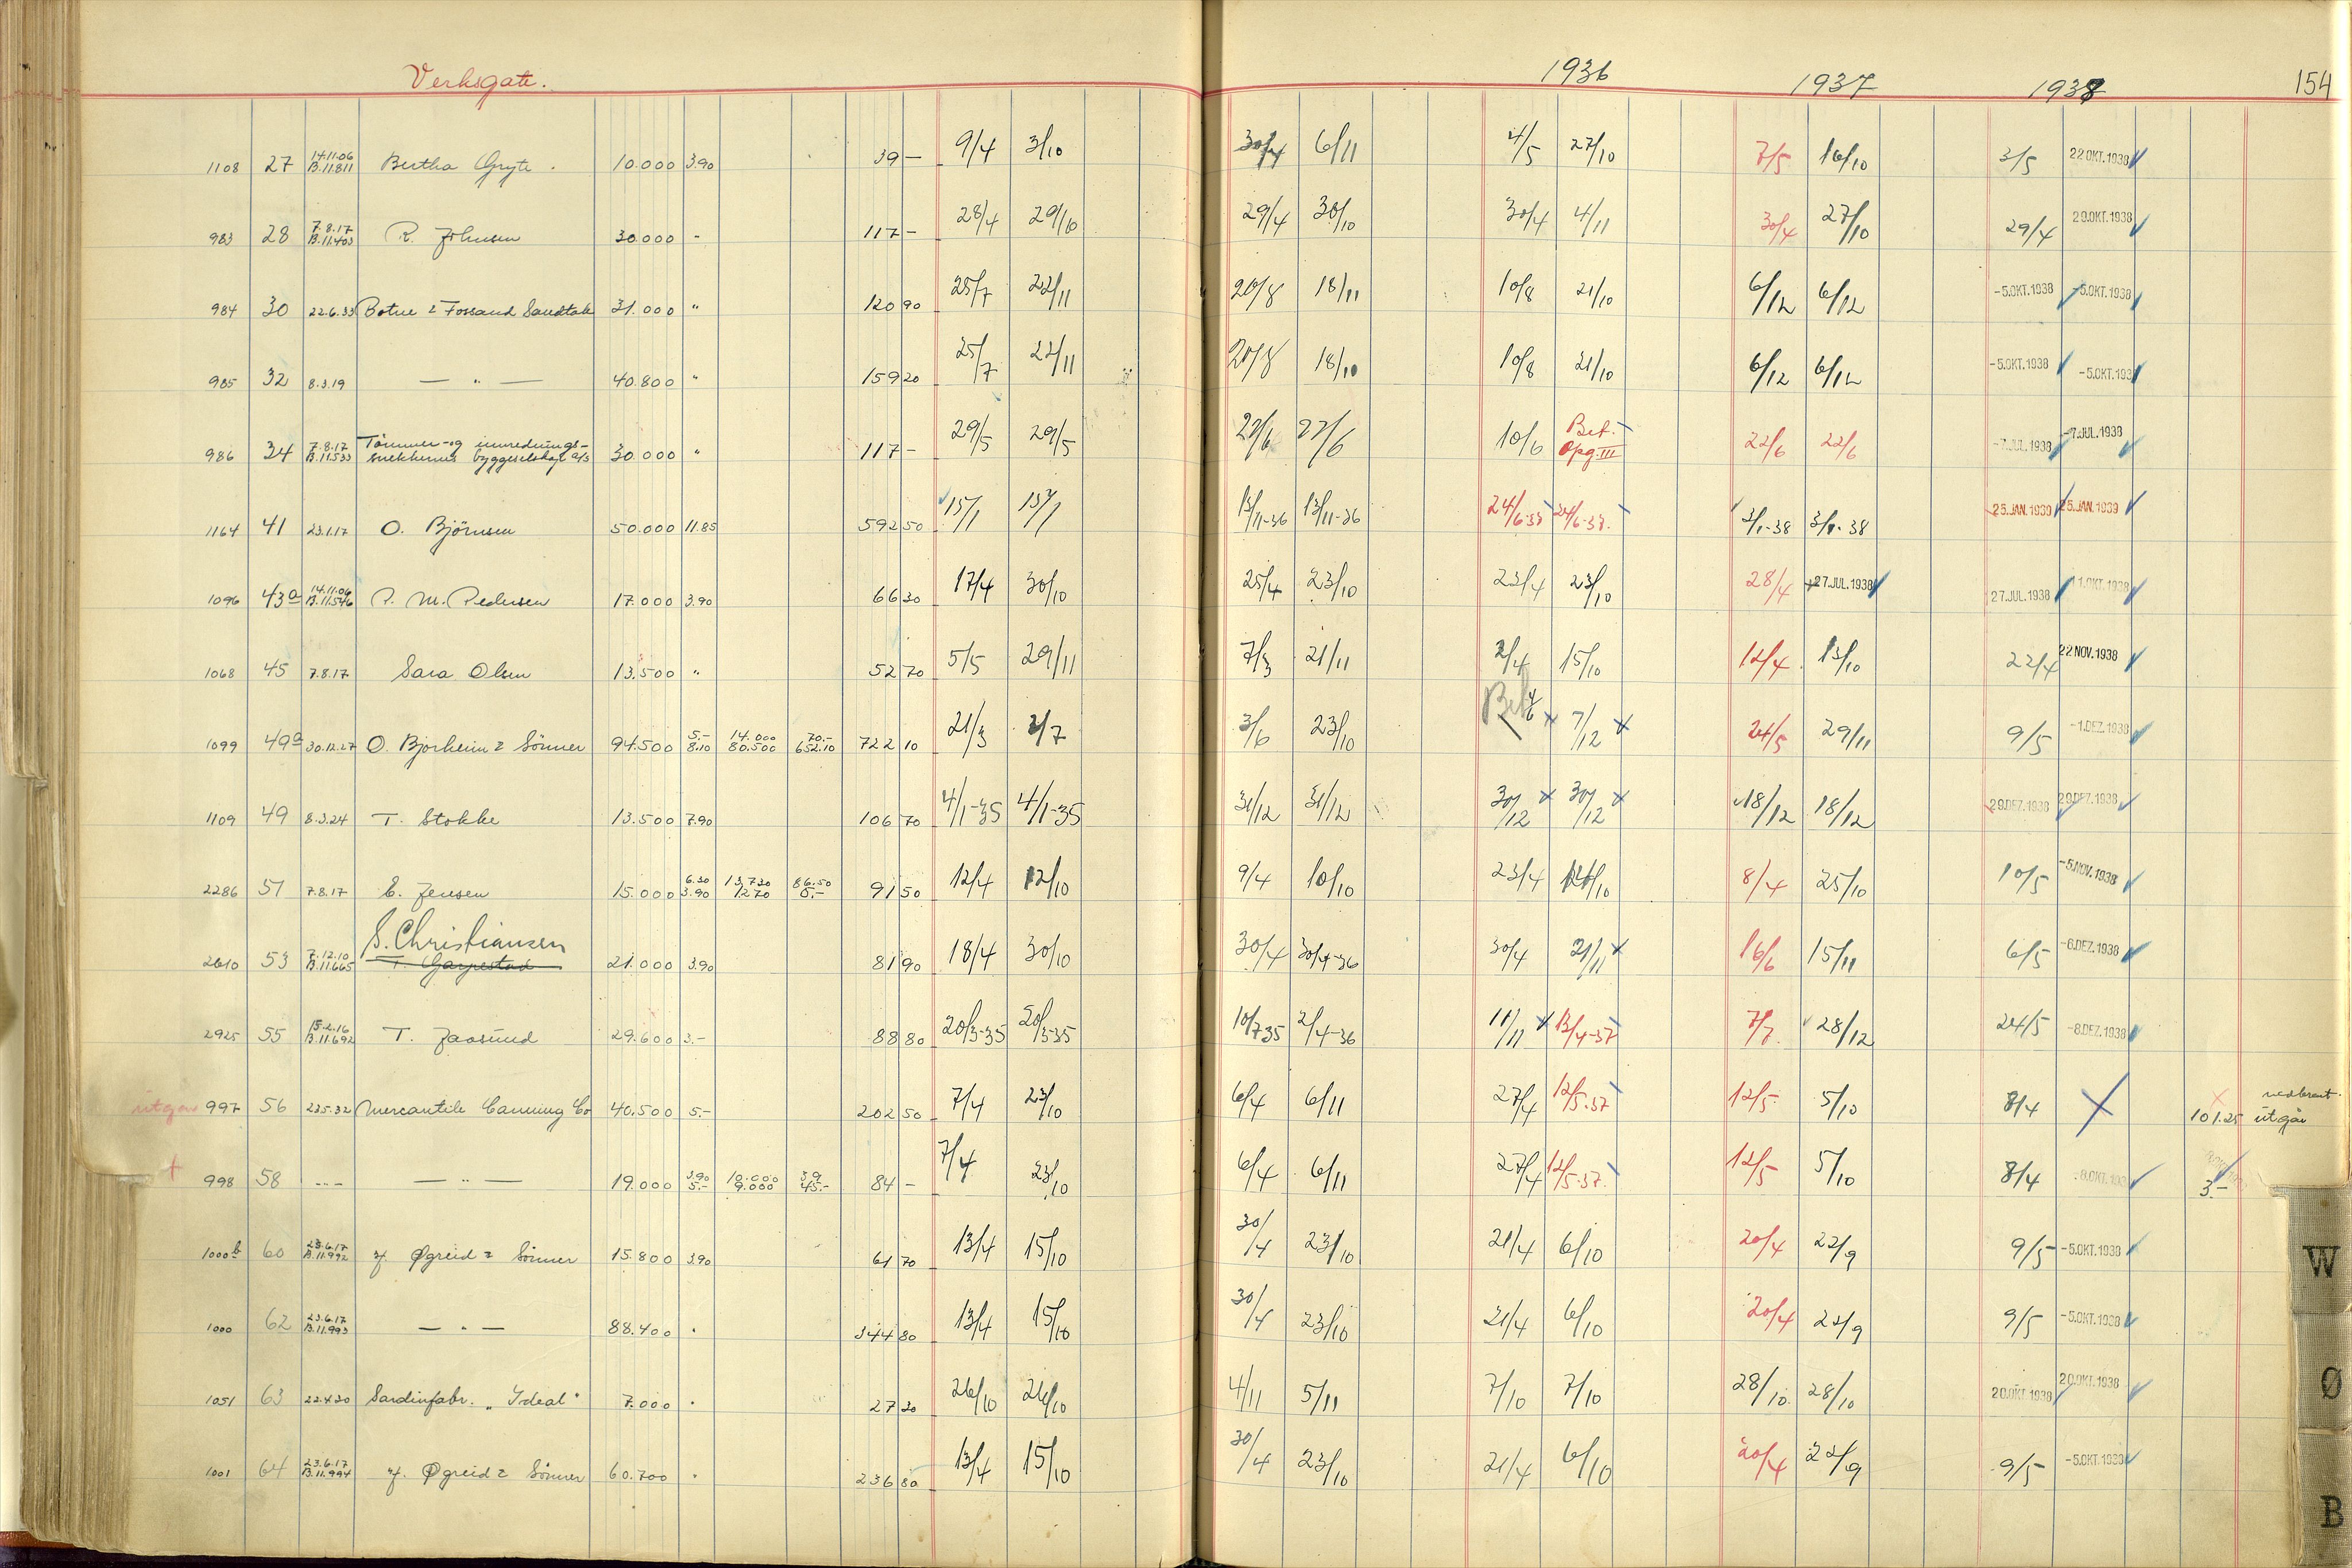 Verksgate.
1936 1937 1938 154
1108 27 14.11.06 B.11811 Bertha Gryte. 10.000 3.90 39 — 9/4 3/10 30/4 6/11 4/5 27/10 7/5 16/10 3/5 22 OKT. 1938
983 28 7.8.17 B.11.403 R. Johnsen 30.000 - 117 - 28/4 29/10 29/4 30/10 30/4 4/11 30/4 27/10 29/4 20.OKT.1938
984 30 22.6.33 Botne & Fossand Sandtak 31.000 " 120 90 25/7 22/11 20/8 18/11 10/8 21/10 6/12 6/12 -5.OKT.1938 -5.OKT.1938
985 32 8.3.19 — " — 40.800 " 159 20 25/7 22/11 20/8 18/10 10/8 21/10 6/12 6/12 -5.OKT.1938 -5.OKT.193
986 34 7.8.17 B.11.533 Tømmer-og innrednings- snekkernes byggeselskap a/s 30.000 " 117 - 29/5 29/5 27/6 27/6 10/6 Bet. Opg. III 22/6 22/6 -7.JUL.1938 -7.JUL.1938
1164 41 23.1.17 O. Björnsen 50.000 11.85 592 50 15/1 15/1 13/11-36 13/11-36 24/6-38 24/6-38. 3/1-38 3/1-38 25.JAN.1939 25.JAN.1939
1096 43a 14.11.06 B.11.546 P. M. Pedersen 17.000 3.90 66 30 17/4 30/10 25/4 23/10 23/4 23/10 28/4 27.JUL.1938 27.JUL.1938 11.OKT.1938
1068 45 7.8.17 Sara Olsen 13.500 " 52 70 5/5 29/11 7/3 21/11 2/4 15/10 12/4 13/10 22/4 22 NOV. 1938
1099 49a 30.12.27 O. Bjorheim & Sönner 94.500 5.- 8.10 14.000 80.500 70.- 652.10 722 10 21/3 2/7 3/6 23/10 Bet 4/6 7/12 24/5 29/11 9/5 -1.DEZ.1938
1109 49 8.3.24 T. Stokke 13.500 7.90 106 70 4/1-35 4/1-35 31/12 31/12 30/12 30/12 18/12 18/12 29.DEZ.1938 29.DEZ.1938
2286 51 7.8.17 E. Jensen 15.000 6.30 3.90 13.730 1270 86.50 5.- 91 50 12/4 12/10 9/4 10/10 23/4 /10 8/4 25/10 10/5 -5.NOV.1938
S. Christiansen
2610 53 7.12.10 B.11.665 T. Garpestad 21.000 3.90 81 90 18/4 30/10 30/4 30/4-36 30/4 21/11 16/6 15/11 6/5 -6.DEZ.1938
2925 55 15.2.16 B.11.692 T. Jaasund 29.600 3.- 88 80 20/3-35 20/3-35 10/7 35 2/4-36 11/11 13/4-37 7/7. 28/12 24/5 -8.DEZ.1938
utgår 997 56 23.5.32 Mercantile Canning Co 40.500 5.- 202 50 7/4 23/10 6/4 6/11 27/4 12/5-37 12/5 5/10 8/4 101.25 nedbrent. utgår
998 58 --- — " — 19.000 3.90 5.- 10.000 9.000 39 45.- 84 - 7/4 23/10 6/4 6/11 27/4 12/5-37. 12/5 5/10 8/4 3.-
1000 b 60 23.6.17 B.11.992 Øgreid & Sönner 15.800 3.90 61 70 13/4 15/10 30/4 23/10 21/4 6/10 20/4 22/9 9/5 -5.OKT.1938
1000 62 23.6.17 B.11.993 — " — 88.400 " 344 80 13/4 15/10 30/4 23/10 21/4 6/10 20/4 22/9 9/5 -5.OKT.1938
1051 63 22.4.20 Sardinfabr. „Ideal" 7.000 " 27 30 26/10 26/10 4/11 5/11 7/10 7/10 28/10 28/10 20.OKT 1938 20.OKT.1938
1001 64 23.6.17 B.11.994 Øgreid & Sönner 60.700 " 236 80 13/4 15/10 30/4 23/10 21/4 6/10 20/4 22/9 9/5 -5.OKT.1938
W
Ø
B